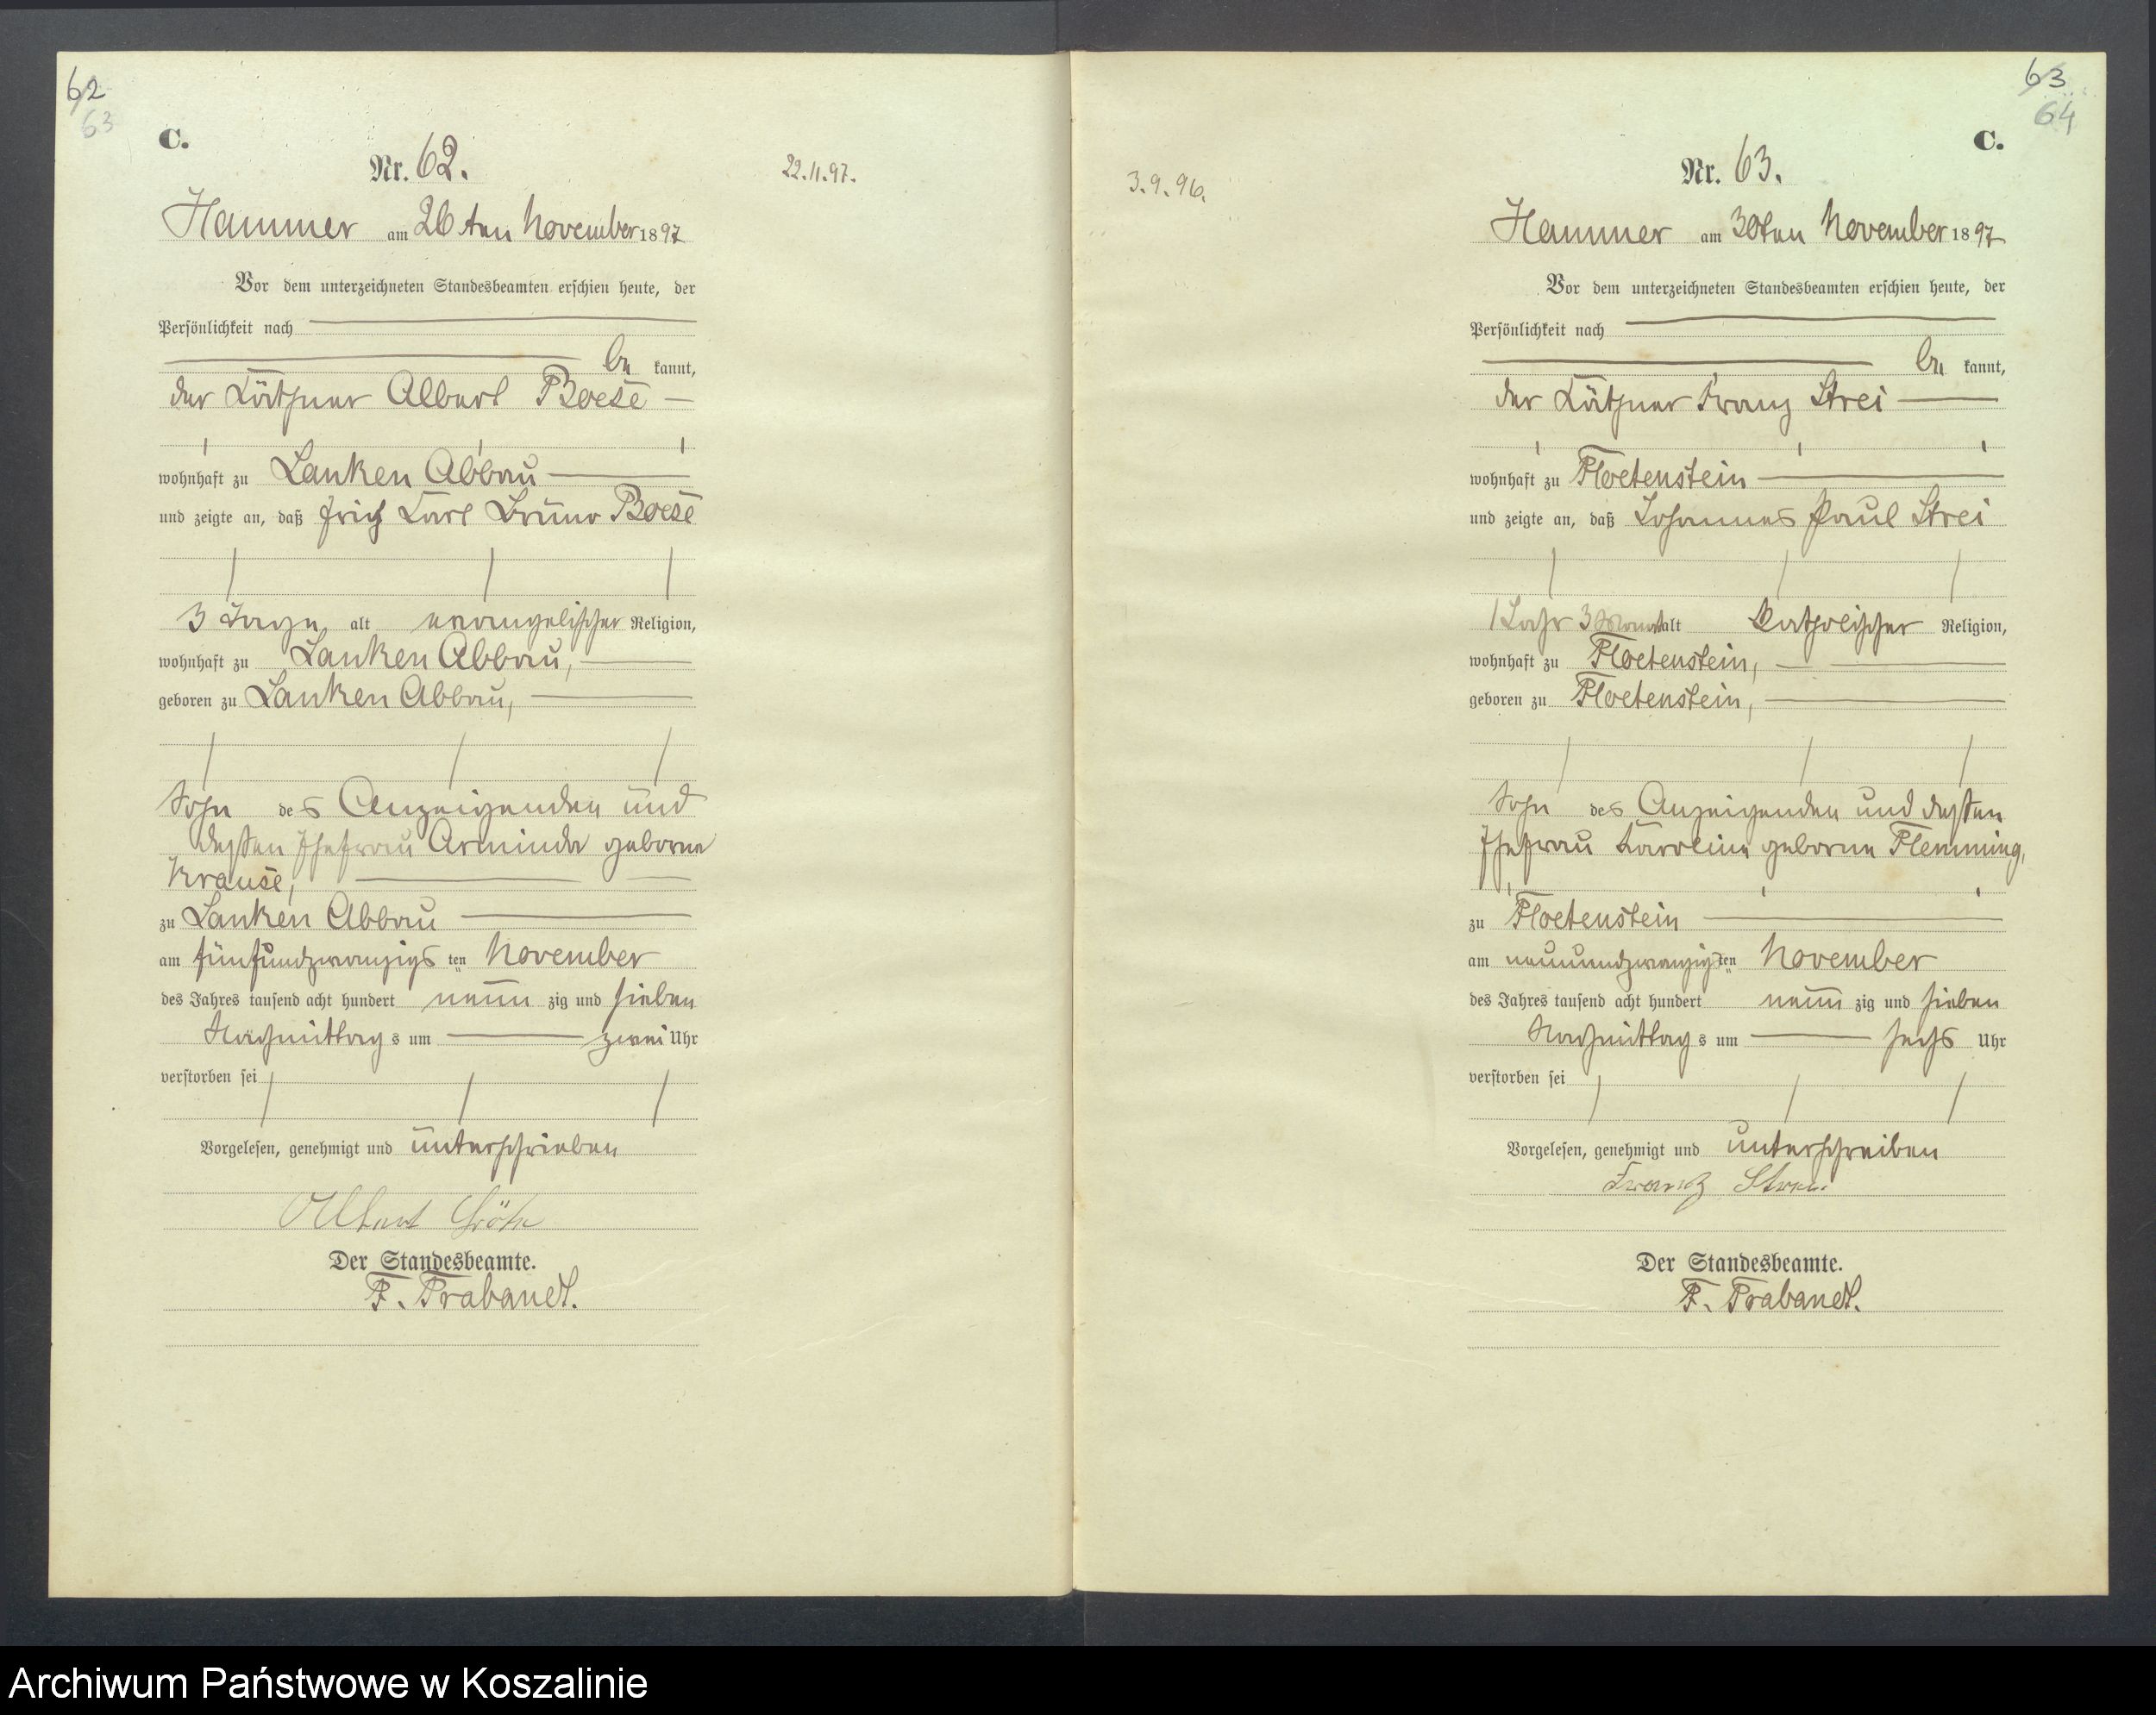 62
63
C.
Nr. 62.
22.11.97.
Hammer am 26ten November 1897
Vor dem unterzeichneten Standesbeamten erschien heute, der
Persönlichkeit nach
be kannt,
der Käthner Albert Boese
wohnhaft zu Lanken Abbau
und zeigte an, daß Erich Karl Bruno Boese
3 Tage alt evangelischer Religion,
wohnhaft zu Lanken Abbau,
geboren zu Lanken Abbau,
Sohn des Anzeigenden und
dessen Ehefrau Arminda geborne
Krause,
zu Lanken Abbau
am fünfundzwanzigs ten November
des Jahres tausend acht hundert neun zig und sieben
Nachmittag s um zwei Uhr
verstorben sei
Vorgelesen, genehmigt und unterschrieben
Albert
Der Standesbeamte.
F. Trabandt.
63
64
C.
Nr. 63.
3.9.96.
Hammer am 30ten November 1897
Vor dem unterzeichneten Standesbeamten erschien heute, der
Persönlichkeit nach
be kannt,
der Käthner Franz Strei
wohnhaft zu Floetenstein
und zeigte an, daß Johannes Paul Strei
1 Jahr 3 Monat alt katholischer Religion,
wohnhaft zu Floetenstein,
geboren zu Floetenstein,
Sohn des Anzeigenden und dessen
Ehefrau Karoline geborne Flemming,
zu Floetenstein
am neunundzwanzigs ten November
des Jahres tausend acht hundert neun zig und sieben
Nachmittag s um sechs Uhr
verstorben sei
Vorgelesen, genehmigt und unterschreiben
Frantz Strei
Der Standesbeamte.
F. Trabandt.
Archiwum Państwowe w Koszalinie